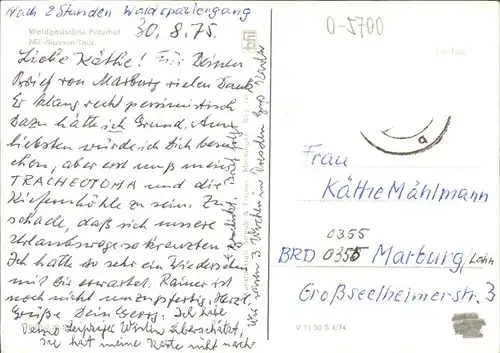 Nach 2 Stunden Waldspaziergang
30.8.75.
Waldgaststätte Peterhof
Mühlhausen/Thür.
Liebe Käthe! Für Deinen
Brief von Marburg vielen Dank
Er klang recht pessimistisch
Dazu hätte ich Grund. Am
liebsten würde ich Dich besu-
chen, aber erst muß meine
TRACHEOTOMA und die
Kiefernhöhle zu sein. Zu
schade, daß sich unsere
Urlaubswege so kreuzten
Ich hätte so sehr ein Wiedersehen
mit Dir erwartet. Rainer ist
noch nicht
Grüße Dein Georg. Ich habe
Deine Leipziger Wirtin überschätzt,
sie hat meine Karte nicht nach-
geschickt.
Wir waren 3 Wochen in Dresden
0-5700
Frau
Käthe Mählmann
0355
BRD 0355 Marburg/Lahn
Großseelheimerstr. 3
V 11 50 S 4/74